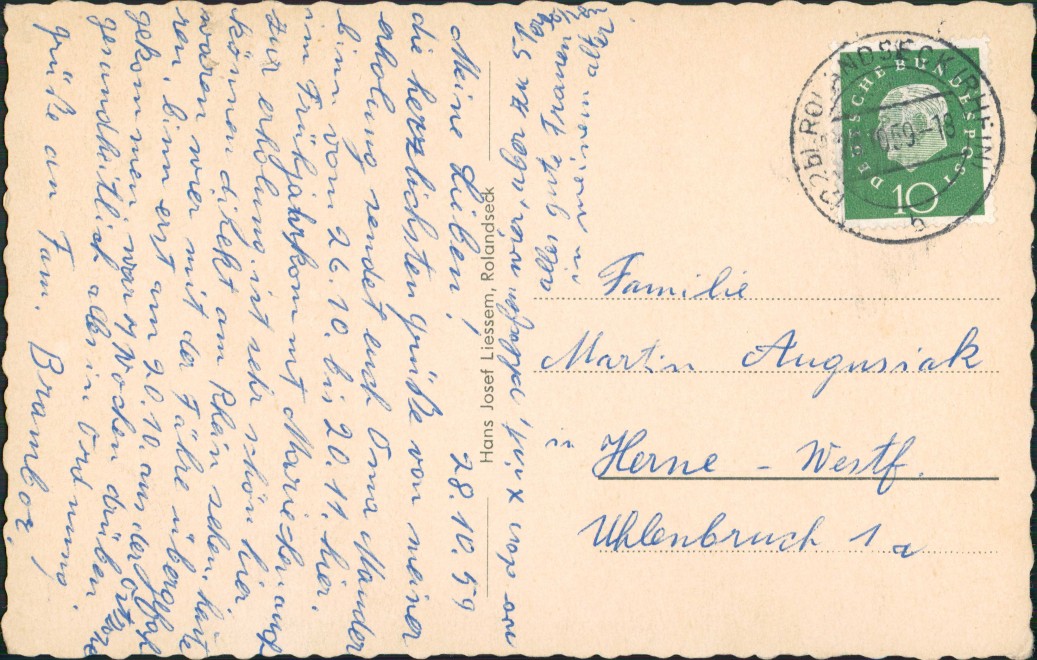 Meine Lieben! 28.10.59
die herzlichsten grüße von meiner
erholung sendet euch Oma Mander
binn vom 26.10. bis 20.11. hier.
im Frühjahr kommt Mariechen auch
zur erholung. ist sehr schön hier
können direkt am Rhein sehen. heute
waren wier mit der Fähre rüber
ren. binn erst am 20.10. aus der
gekommen war 4 Wochen drüben.
gesundheitlich alles in Ordnung.
grüße an Fam. Brambor.
alles gute
in meinem alter
Hans Josef Liessem, Rolandseck
(22b) ROLANDSECK (RHEIN)
10.59-18
b
DEUTSCHE BUNDESPOST
10
Familie
Martin Augusiak
in Herne - Westf.
Uhlenbruch 1a